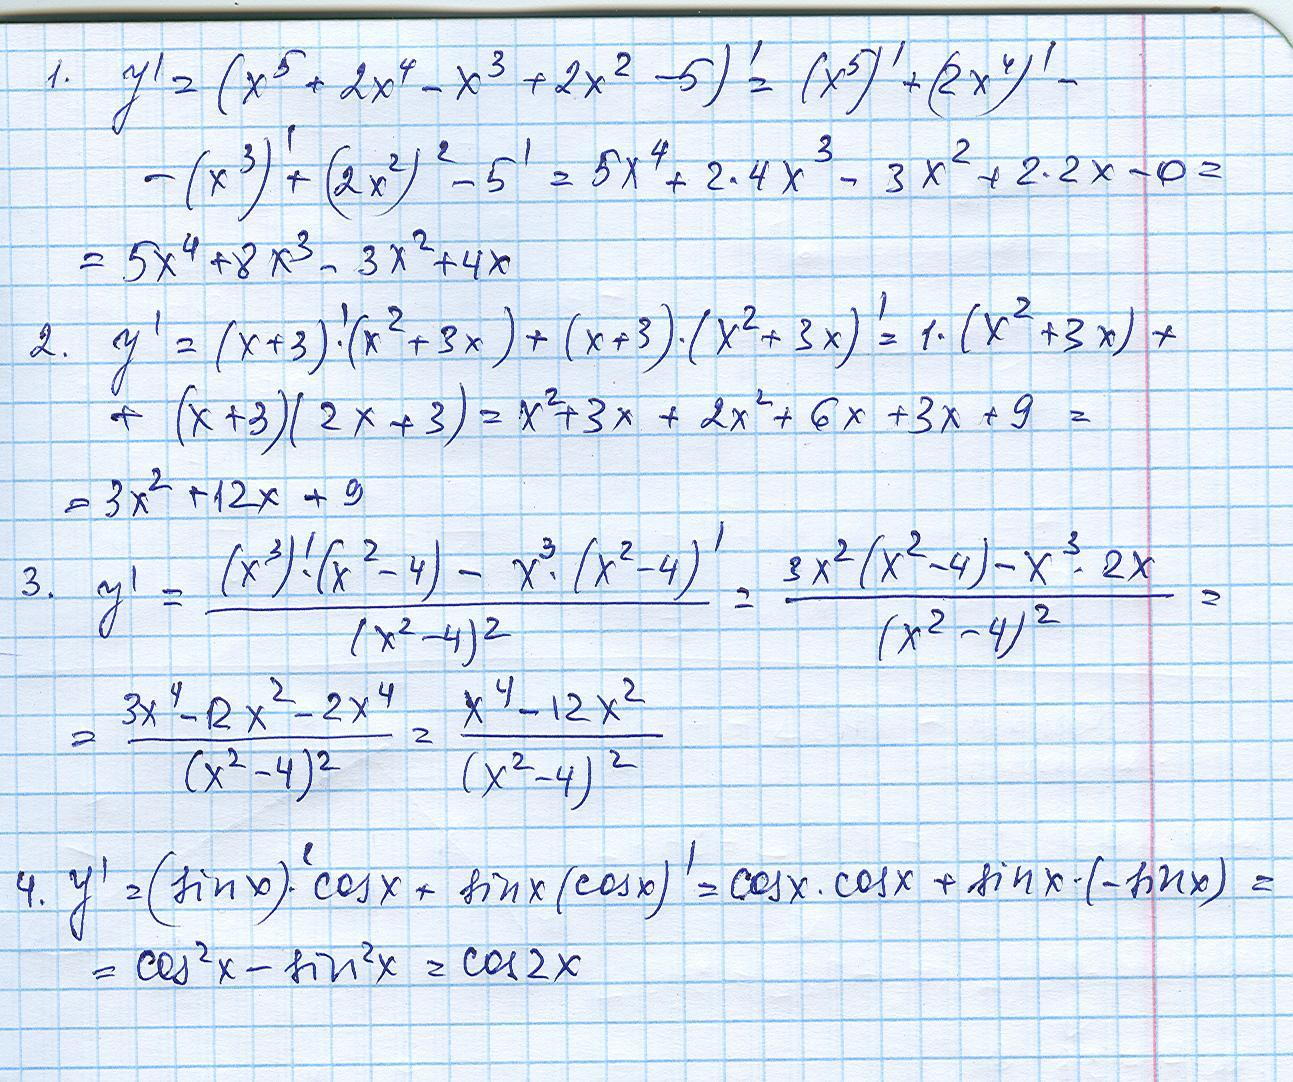 1. y' = (x⁵ + 2x⁴ - x³ + 2x² - 5)' = (x⁵)' + (2x⁴)' -
- (x³)' + (2x²)² - 5' = 5x⁴ + 2·4x³ - 3x² + 2·2x - 0 =
= 5x⁴ + 8x³ - 3x² + 4x
2. y' = (x+3)'·(x² + 3x) + (x+3)·(x² + 3x)' = 1·(x² + 3x) +
+ (x+3)(2x+3) = x² + 3x + 2x² + 6x + 3x + 9 =
= 3x² + 12x + 9
3. y' = ((x³)'·(x² - 4) - x³·(x² - 4)')/(x² - 4)² = (3x²(x² - 4) - x³·2x)/(x² - 4)² =
= (3x⁴ - 12x² - 2x⁴)/(x² - 4)² = (x⁴ - 12x²)/(x² - 4)²
4. y' = (sin x)'·cos x + sin x (cos x)' = cos x · cos x + sin x·(-sin x) =
= cos²x - sin²x = cos 2x